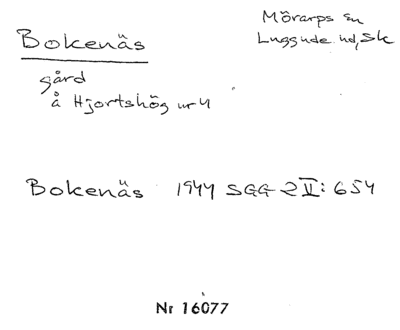 Bokenäs
Mörarps sn
Luggude hd, Sk
gård
å Hjortshög nr 4
Bokenäs 1944 SGG 2 V: 654
Nr 16077